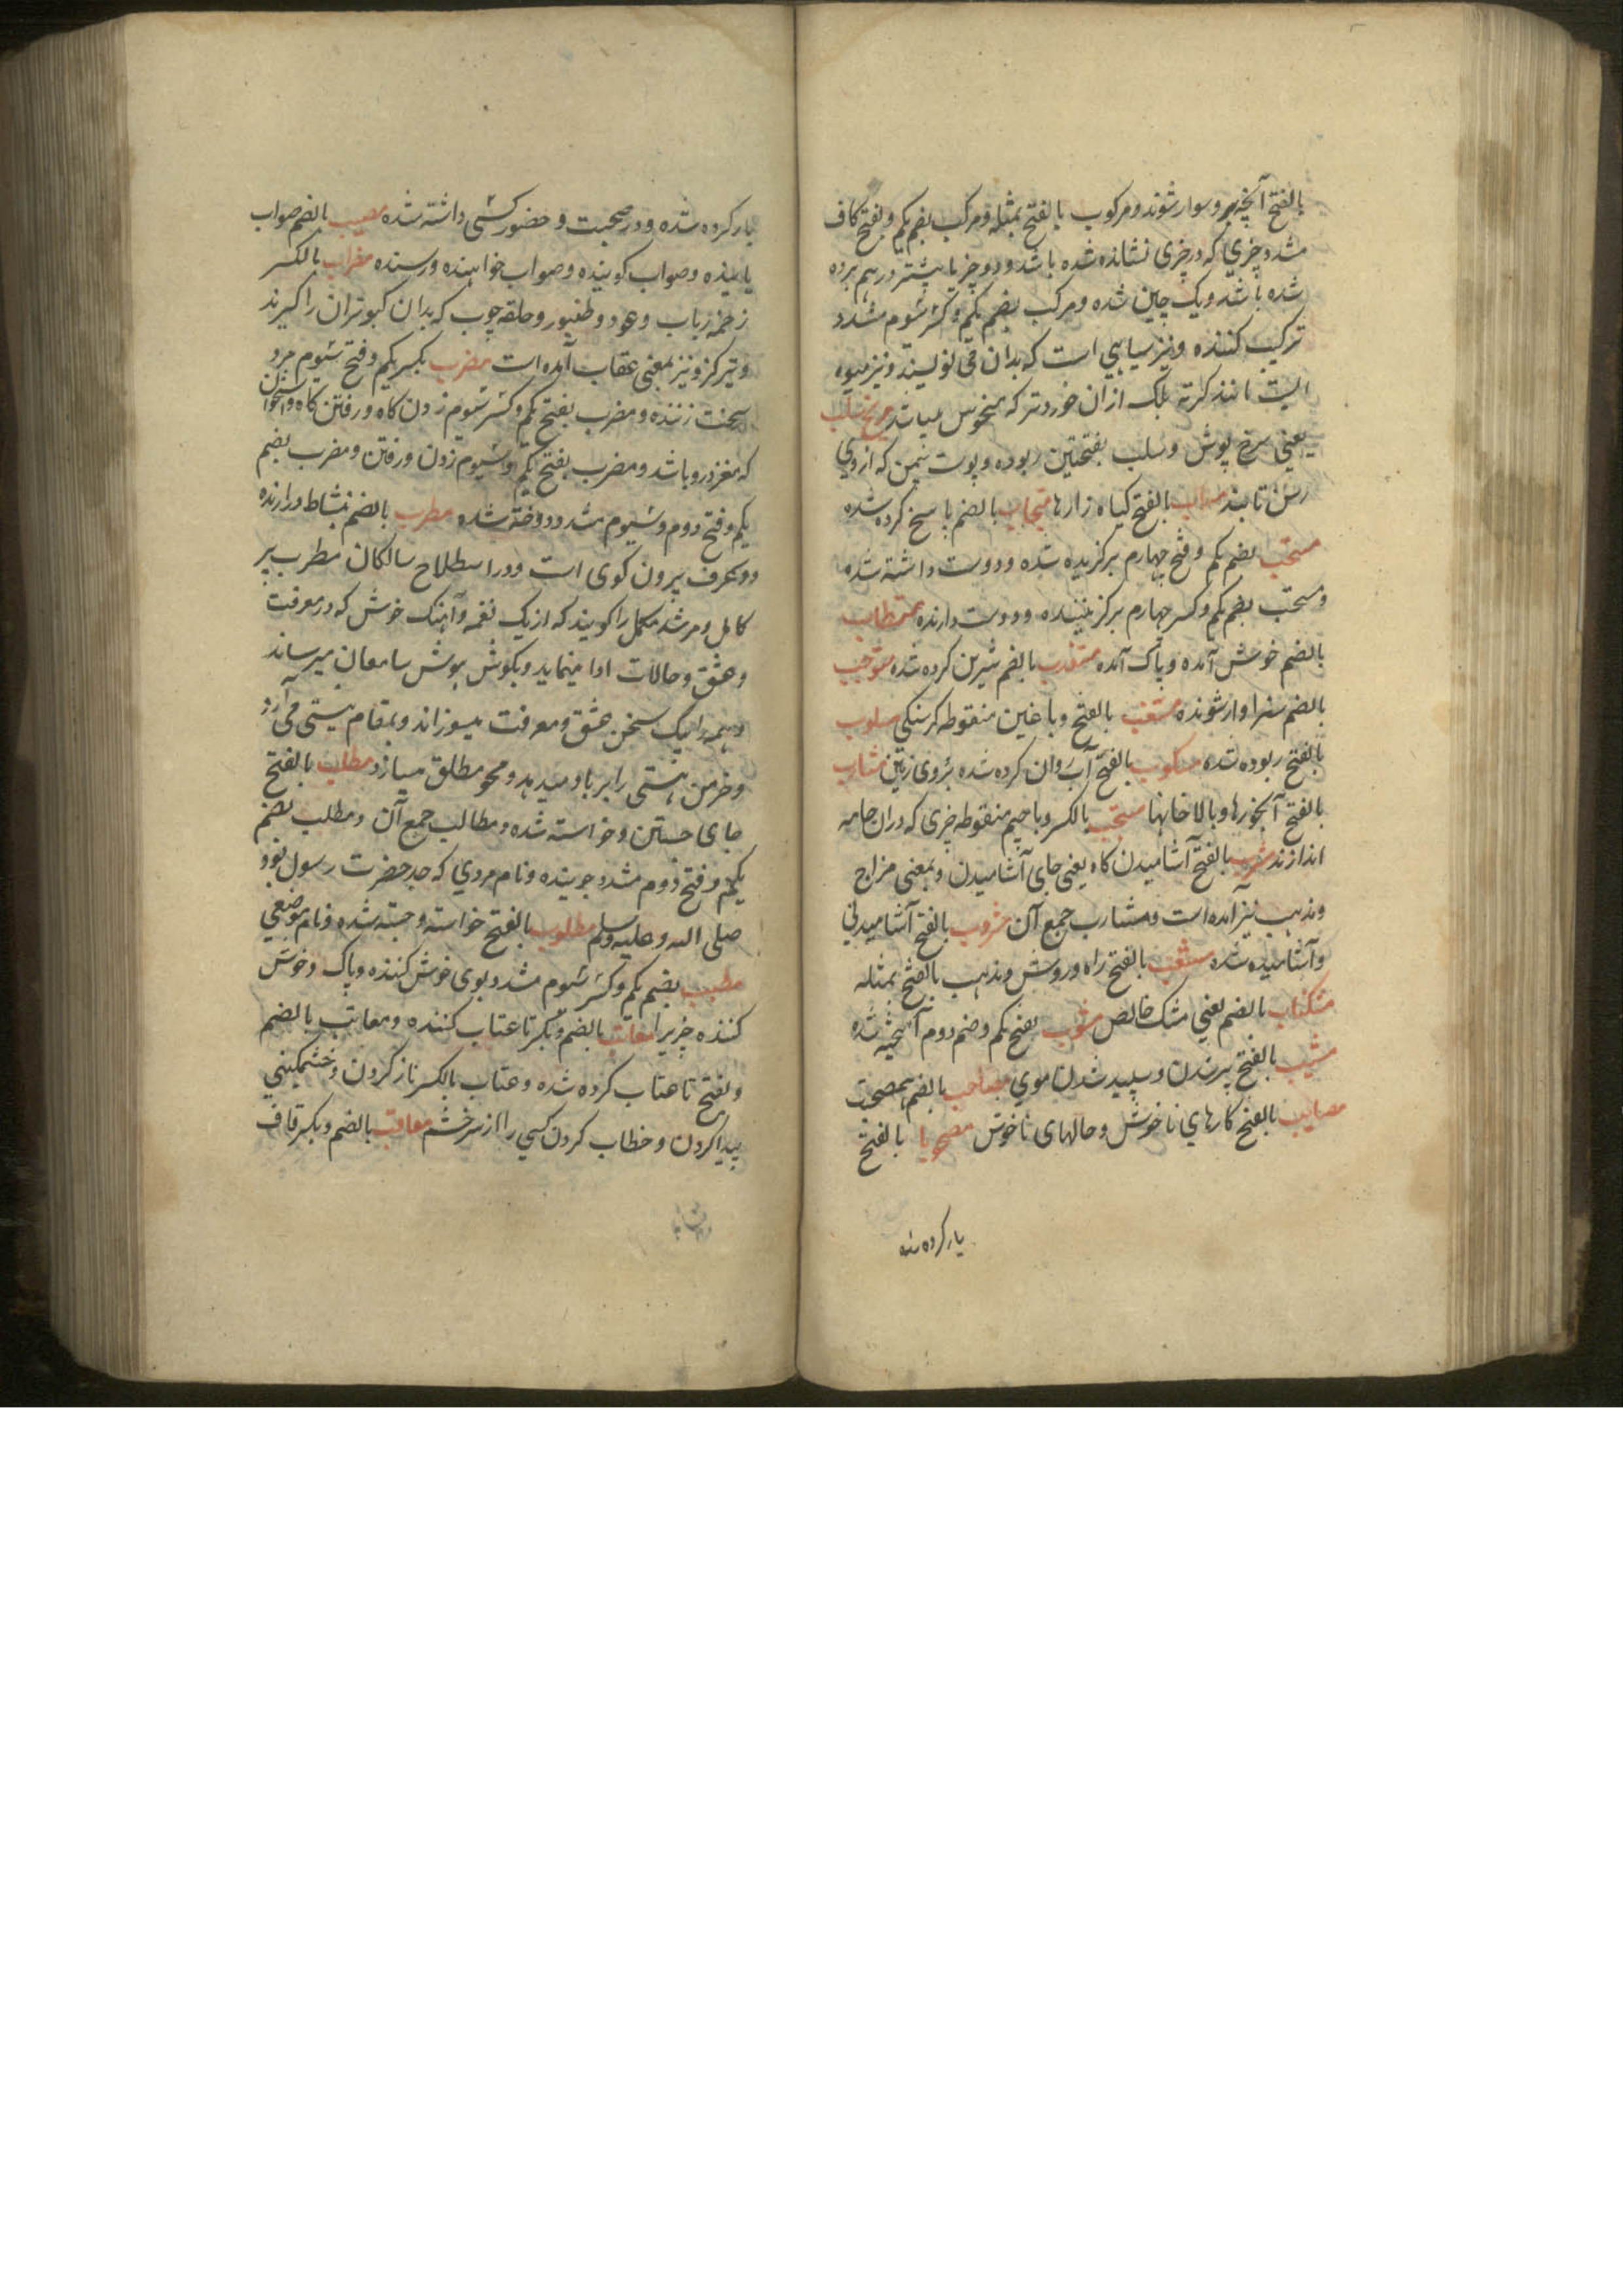 بالفتح آنچه برو سوار شوند و مرکوب بالفتح بمثله و مرکب بضم یکم و بفتح کاف
مشدد چیزی که در چیزی نشانده شده باشد و دو چیز یا بیشتر در هم برده
شده باشد و یک چین شده و مرکب بضم یکم و کسر سیوم مشدد
ترکیب کننده و نیز سیاهی است که بدان می نویسند و نیز میوه
ایست مانند کرته بلک ازان خوردتر که میخوش میباشد مریخ سلب
یعنی سرخ پوش و سلب بفتحتین ربوده و پوست که از وی
رسن تابند بالفتح کیاه زارها مجاب بالضم پاسخ کرده شده
مستحب بضم یکم و فتح چهارم برکزیده شده و دوست داشته شده
و مستحب بضم یکم و کسر چهارم برکزیننده و دوست دارنده مستطاب
بالضم خوش آمده و پاک آمده مستعذب بالضم شیرین کرده شده مستوجب
بالضم سزاوار شونده مسغب بالفتح و با غین منقوطه کرسنکی مسلوب
بالفتح ربوده شده مسکوب بالفتح آب روان کرده شده بر روی زمین مشارب
بالفتح آبخورها و بالاخانها مشجب بالکسر و با جیم منقوطه چیزی که دران جامه
اندازند مشرب بالفتح آشامیدن کاه یعنی جای آشامیدن و بمعنی مزاج
و مذهب نیز آمده است و مشارب جمع آن مشروب بالفتح آشامیدنی
و آشامیده شده مشعب بالفتح راه و روش و مذهب بالفتح بمثله
مشکناب بالضم یعنی مشک خالص مشوب بفتح یکم و ضم دوم آمیخته شده
مشیب بالفتح پیر شدن و سپید شدن موی مصاحب بالضم هم صحبت
مصایب بالفتح کارهای ناخوش و حالهای ناخوش مصحوبا بالفتح
یار کرده شده
یار کرده شده و در صحبت و حضور کسی داشته شده مصیب بالضم صواب
یابنده و صواب کوینده و صواب خواهنده و رسنده مضراب بالکسر
زخمه رباب و عود و طنبور و حلقه چوب که بدان کبوتران را کیرند
و تیر کز و نیز بمعنی عقاب آمده است مضرب بکسر یکم و فتح سیوم مرد
سخت زننده و مضرب بفتح یکم و کسر سیوم زدن کاه و رفتن کاه و استخوان
که مغز درو باشد و مضرب بفتح یکم و سیوم زدن و رفتن و مضرب بضم
یکم و فتح دوم و سیوم مشدد دوخته شده مطرب بالضم نشاط درارنده
و معرف بیرون کوی است و در اصطلاح سالکان مطرب پیر
کامل و مرشد مکمل را کویند که از یک نغمه و آهنک خوش که در معرفت
و عشق و حالات ادا مینماید و بکوش هوش سامعان میرساند
و همه را یک سخن عشق و معرفت میسوزاند و بمقام نیستی می آرد
و خرمن هستی را بر باد میدهد و محو مطلق میسازد مطلب بالفتح
جای جستن و خواسته شده و مطالب جمع آن و مطلب بضم
یکم و فتح دوم مشدد جوینده و نام مردی که جد حضرت رسول بود
صلی الله و علیه و سلم مطلوب بالفتح خواسته و جسته شده و نام موضعی
مطیب بضم یکم و کسر سیوم مشدد بوی خوش کننده و پاک و خوش
کننده چیزیرا معاتب بالضم و بکسر تا عتاب کننده و معاتب بالضم
و بفتح تا عتاب کرده شده و عتاب بالکسر ناز کردن و خشمکینی
پیدا کردن و خطاب کردن کسی را از سر خشم معاقب بالضم و بکسر قاف